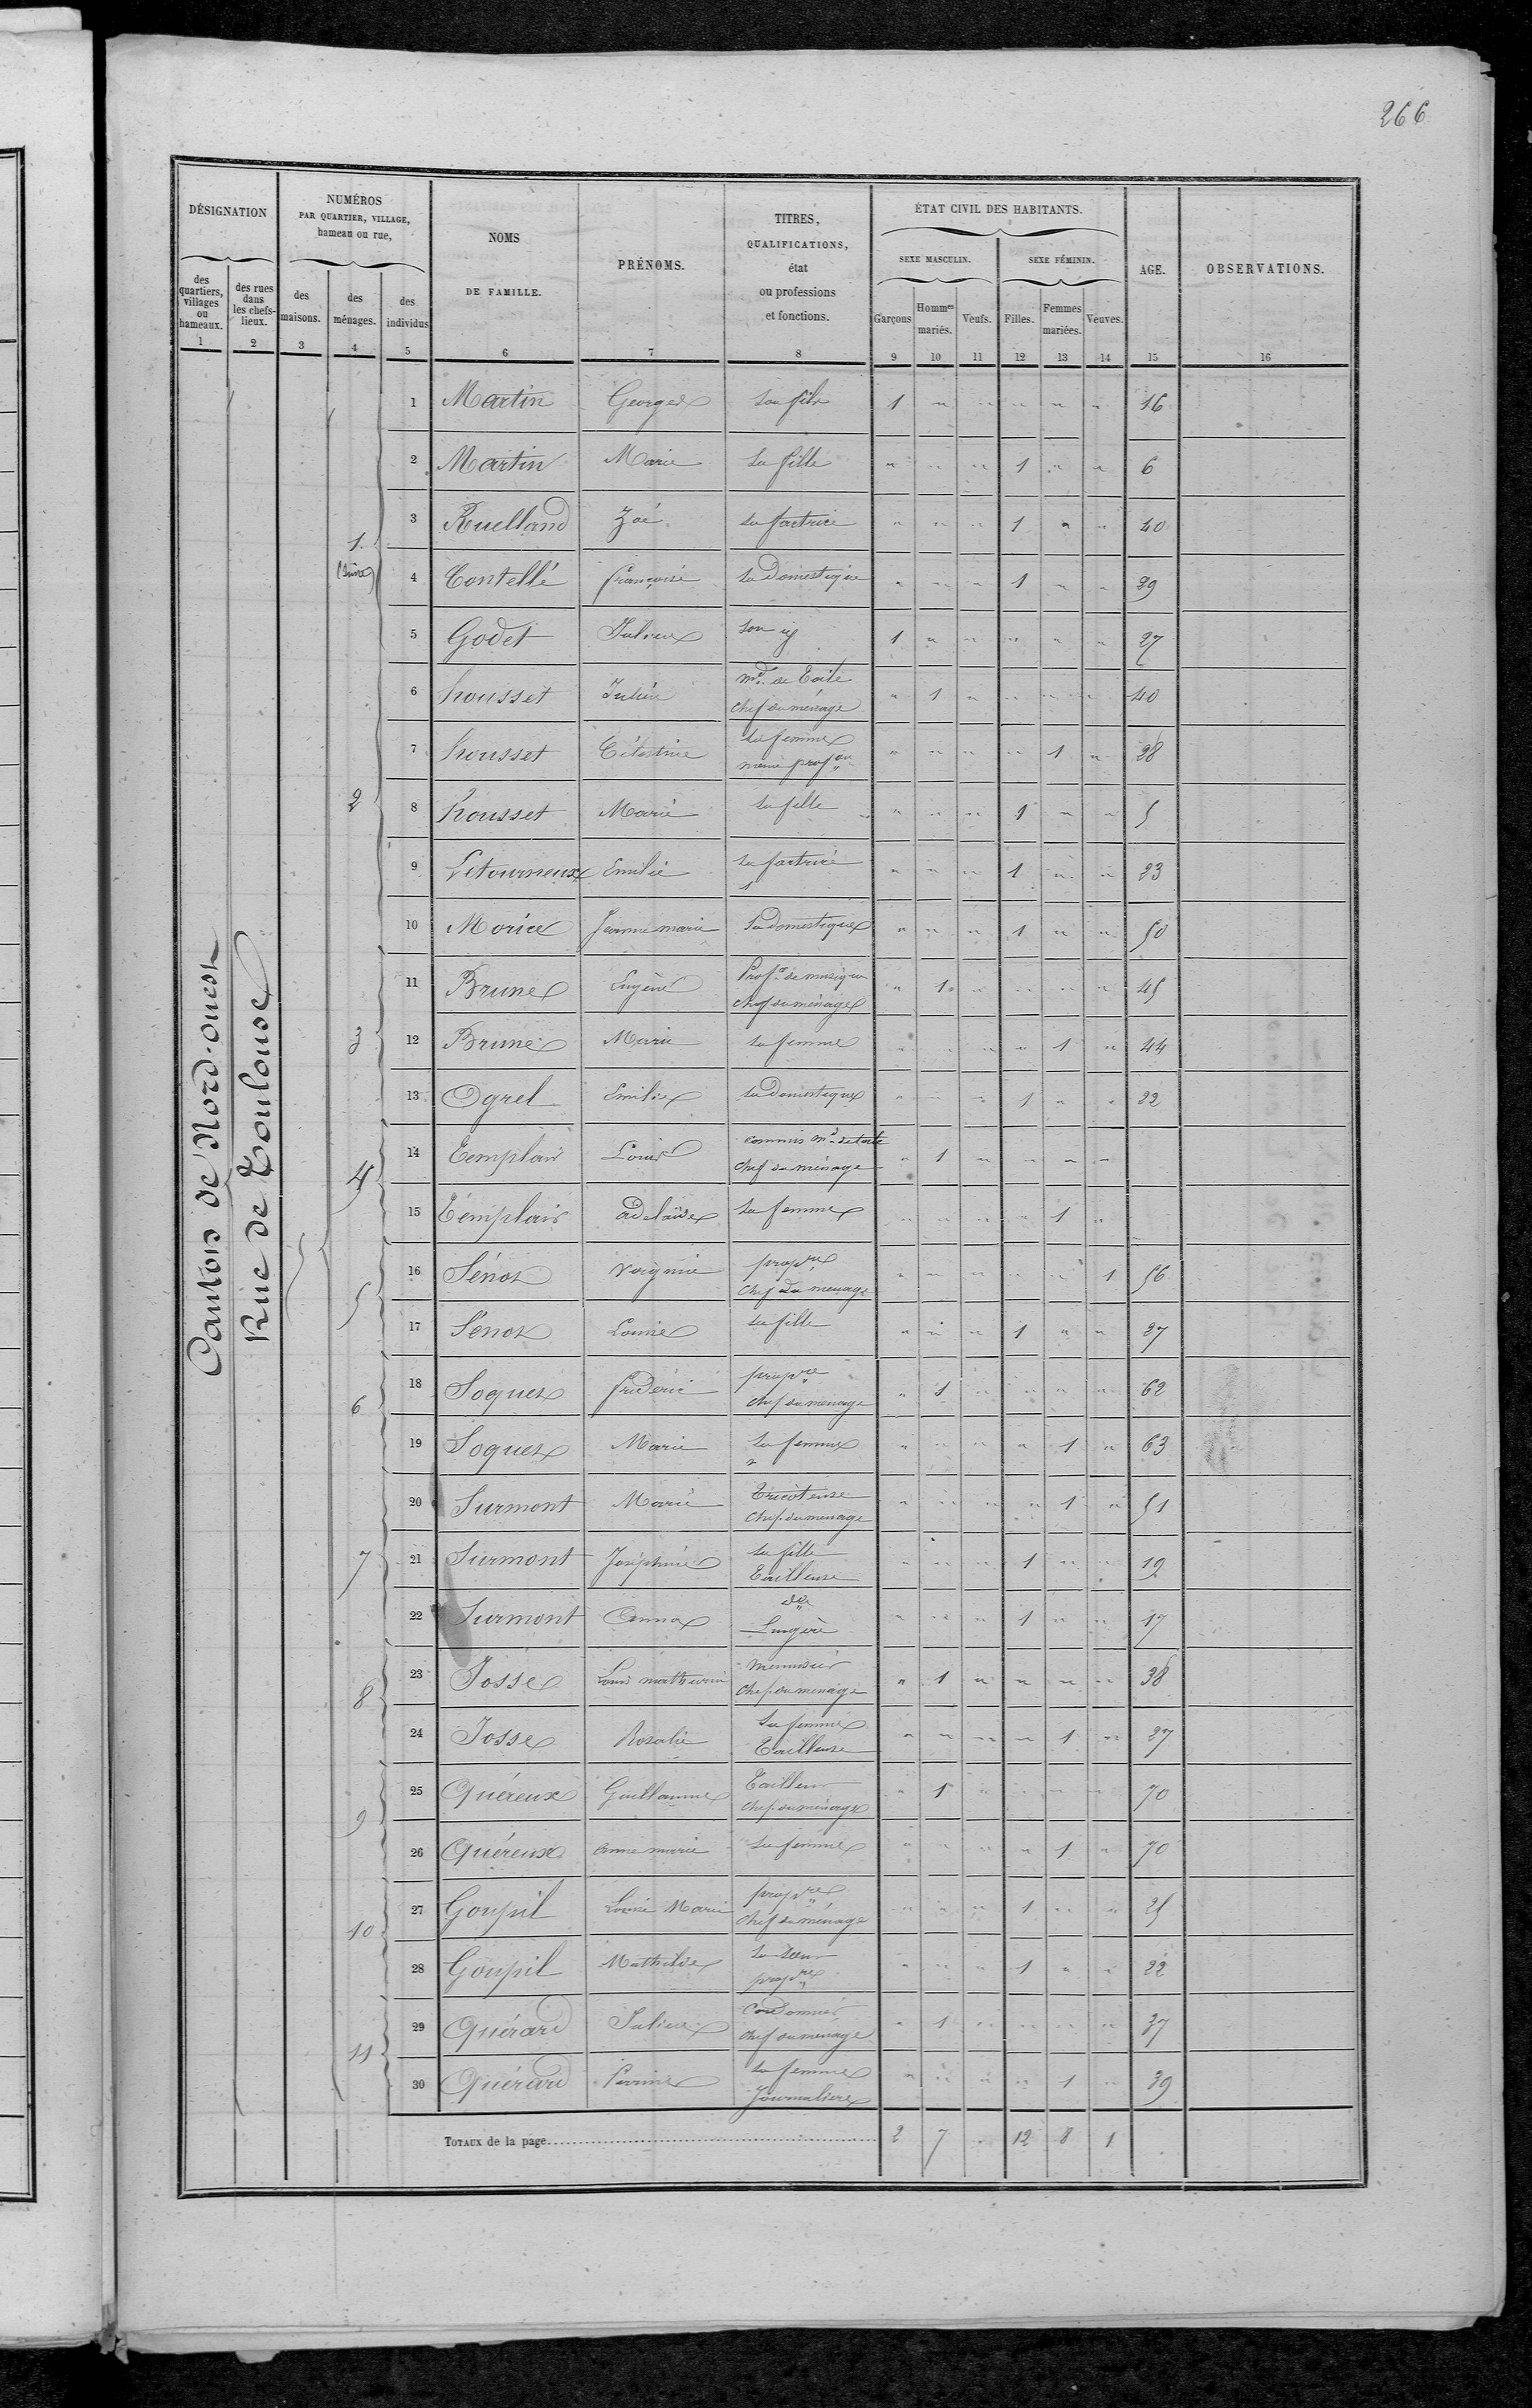 266
DÉSIGNATION
NUMÉROS
PAR QUARTIER, VILLAGE,
hameau ou rue,
NOMS
DE FAMILLE.
PRÉNOMS.
TITRES,
QUALIFICATIONS,
état
ou professions
et fonctions.
ÉTAT CIVIL DES HABITANTS.
SEXE MASCULIN.
SEXE FÉMININ.
AGE.
OBSERVATIONS.
des quartiers, villages ou hameaux.
des rues dans les chefs-lieux.
des maisons.
des ménages.
des individus
Garçons
Hommes mariés.
Veufs.
Filles.
Femmes mariées.
Veuves.
1 2 3 4 5 6 7 8 9 10 11 12 13 14 15 16
Canton de Nord-ouest
Rue de Toulouse
1 Martin Georges son fils 1 " " " " " 16
2 Martin Marie sa fille " " " 1 " " 6
1
3 Ruelland Zoé sa factrice " " " 1 " " 40
4 Contellé françoise sa Domestique " " " 1 " " 29
5 Godet Julien son 1 " " " " " 27
6 housset Julien md. de Toile chef du ménage " 1 " " " " 40
7 housset Célestine sa femme même profon " " " " 1 " 28
2
8 housset Marie sa fille " " " 1 " " 5
9 Letourneux Emilie sa factrice " " " 1 " " 23
10 Morice Jeanne marie sa domestique " " " 1 " " 50
11 Brune Eugène Profr de musique chef du ménage " 1 " " " " 45
3
12 Brune Marie sa femme " " " " 1 " 44
13 Ogrel Emilie sa domestique " " " 1 " " 22
4
14 Templair Louis commis md. de toile chef du ménage " 1 " " " "
15 Templair adelaïde sa femme " " " " 1 "
5
16 Sénot Virginie propre chef du menage " " " " " 1 56
17 Senot Louise sa fille " " " 1 " " 27
6
18 Soquet frédéric propre chef du menage " 1 " " " " 62
19 Soquet Marie sa femme " " " " 1 " 63
20 Surmont Marie Tricoteuse chef du menage " " " " 1 " 51
7
21 Surmont Joséphine sa fille Tailleuse " " " 1 " " 19
22 Surmont Anna do Lingère " " " 1 " " 17
8
23 Josse Louis mathurin menuisier chef du menage " 1 " " " " 38
24 Josse Rosalie sa femme Tailleuse " " " " 1 " 27
9
25 Quéreux Guillaume Tailleur chef du ménage " 1 " " " " 70
26 Quéreux anne marie sa femme " " " " 1 " 70
10
27 Goupil Louise Marie propre chef du ménage " " " 1 " " 25
28 Goupil Mathilde sa sœur propre " " " 1 " " 22
11
29 Quérard Julien Cordonnier chef du menage " 1 " " " " 37
30 Quérard Perrine sa femme Journalière " " " " 1 " 39
TOTAUX de la page 2 7 . 12 8 1